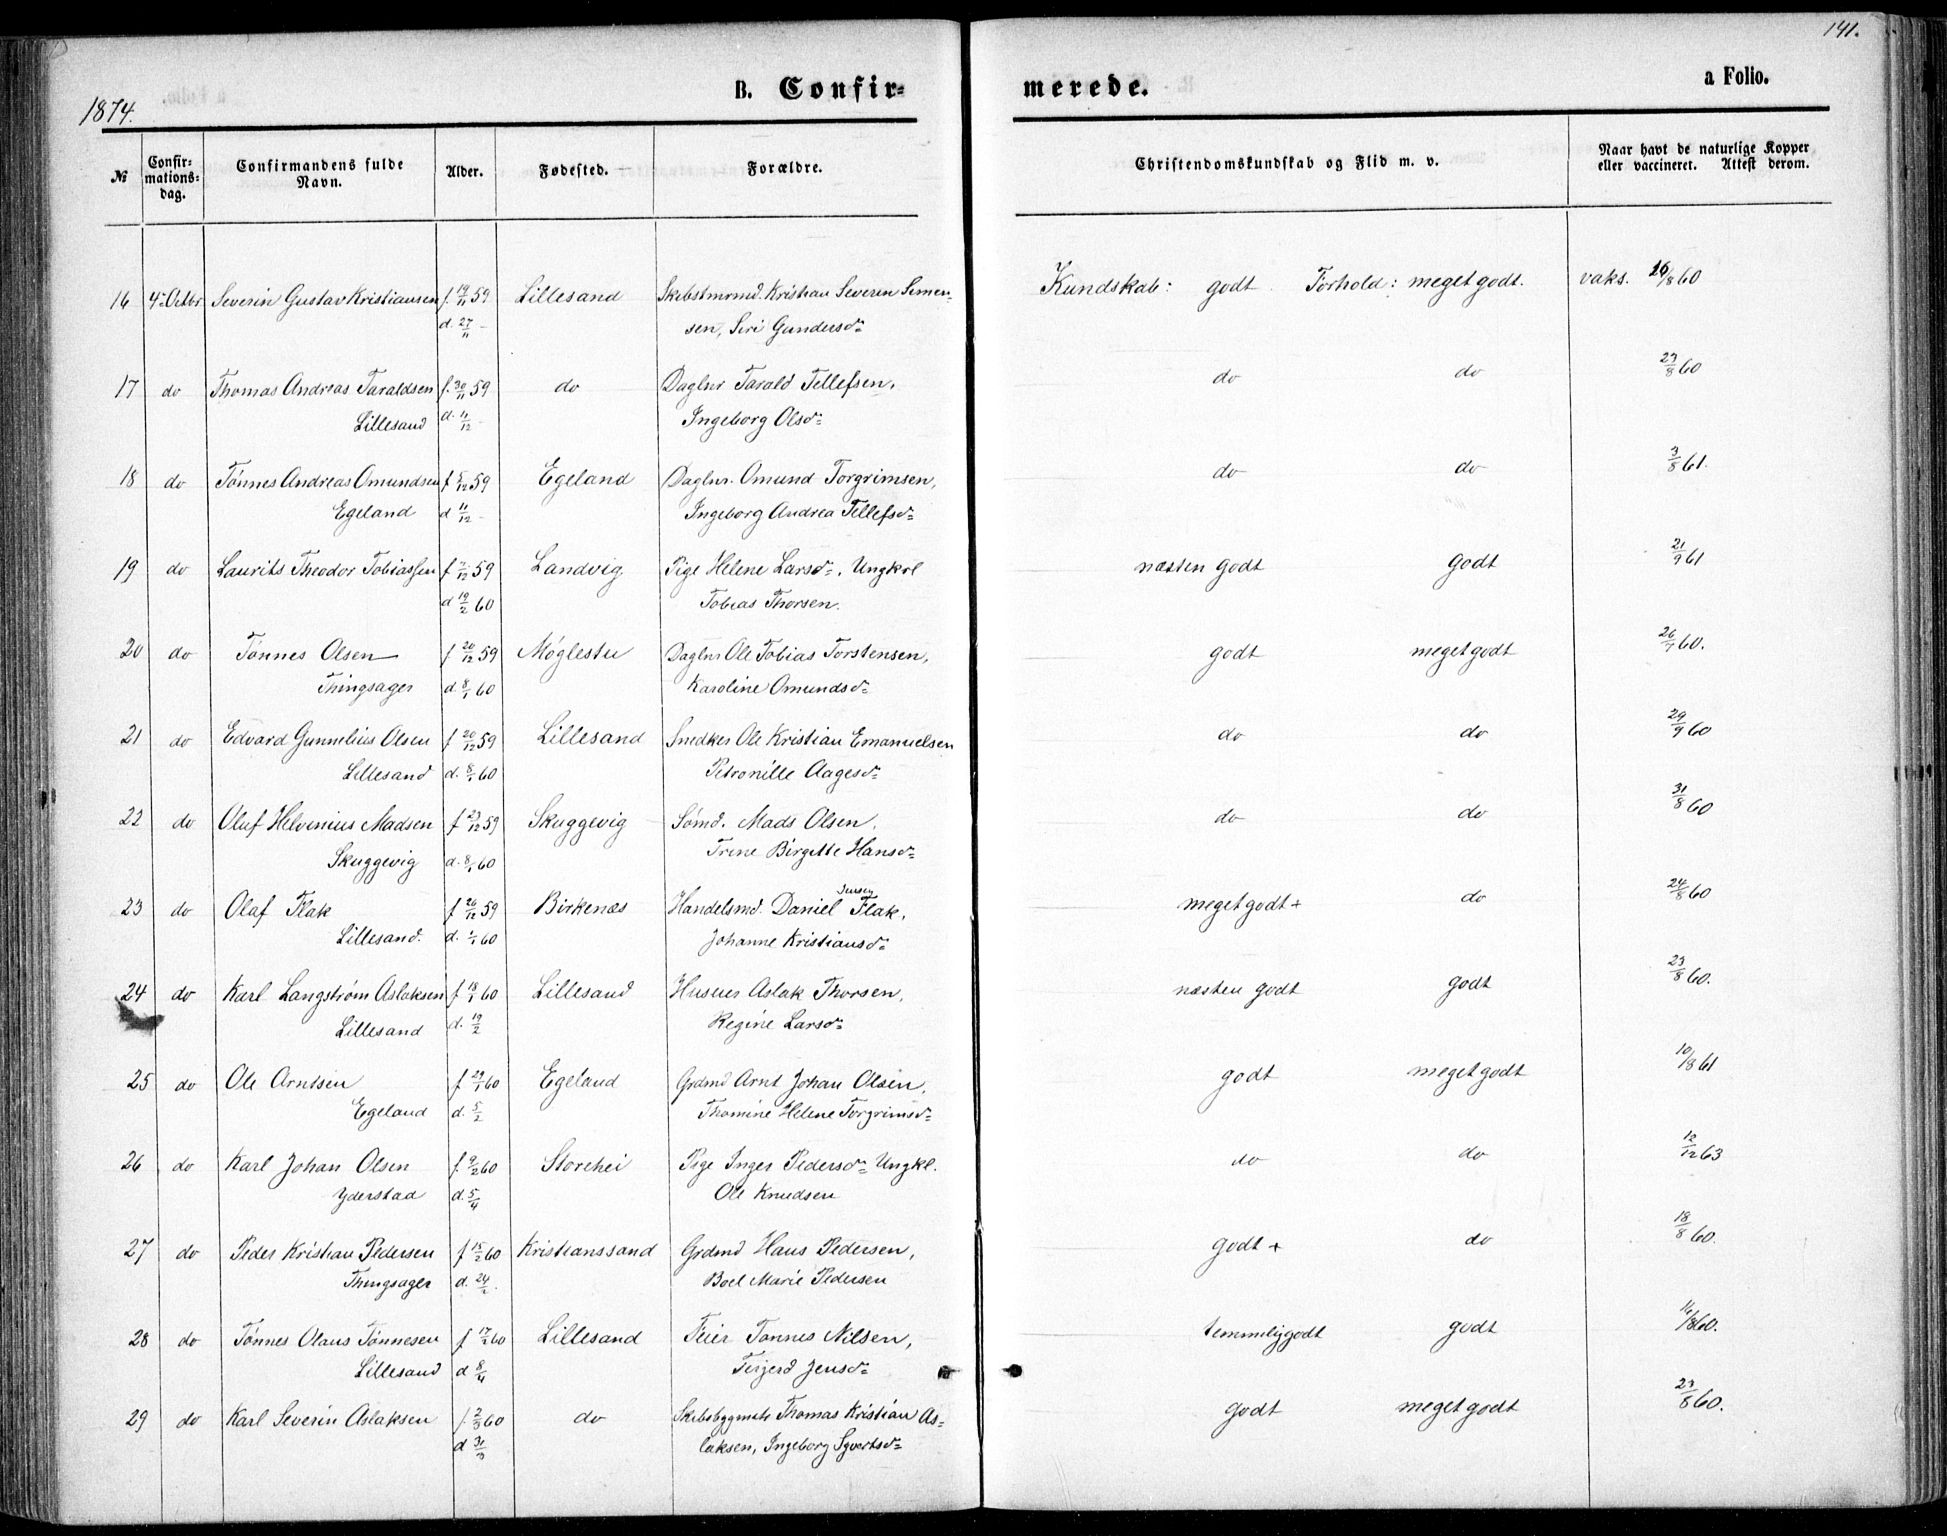 141.
1874.
B. Confir-
merede.
a Folio.
№
Confir-
mations-
dag.
Confirmandens fulde
Navn.
Alder.
Fødested.
Forældre.
Christendomskundskab og Flid m. v.
Naar havt de naturlige Kopper
eller vaccineret. Attest derom.
16 4de Octbr Severin Gustav Kristiansen f. 19/11 59 Lillesand Skibstmrmd. Kristian Severin Simen- Kundskab: godt Forhold: megetgodt. vaks. 26/8 60
d. 27/11 - sen, Siri Gundersd=
17 do Thomas Andreas Taraldsen f. 30/11 59 do Daglnr Tarald Tellefsen, do do 23/8 60
Lillesand d. 11/12 - Ingeborg Olsd=
18 do Tønnes Andreas Omundsen f 5/12 59 Egeland Daglnr. Omund Torgrimsen, do do 3/8 61.
Egeland d 11/12 - Ingeborg Andrea Tellefsd=
19 do Laurits Theodor Tobiassen f 7/12 59 Landvig Pige Helene Larsd=, Ungkrl næsten godt godt 21/9 61
d 19/2 60 Tobias Thorsen.
20 do Tønnes Olsen f 20/12 59 Møglestu Daglnr Ole Tobias Torstensen, godt megetgodt 26/7 60.
Thingsager d. 8/1 60 Karoline Omundsd=
21 do Edvard Gunnelius Olsen f 20/12 59 Lillesand Snedker Ole Kristian Emanuelsen do do 29/9 60
Lillesand d. 8/1 60 Petronille Aagesd=
22 do Oluf Helvinius Madsen f 23/12 59 Skuggevig Sømd. Mads Olsen, do do 31/8 60
Skuggevig d. 8/1 60 Trine Birgitte Hansd=
23 do Olaf Flak f 26/12 59 Birkenæs Handelsmd. Daniel Jensen Flak, megetgodt+ do 24/8 60
Lillesand. d. 1/1 60 Johanne Kristiansd=
24 do Karl Langstrøm Aslaksen f 18/1 60 Lillesand Huseier Aslak Thorsen, næsten godt godt 23/8 60.
Lillesand d. 19/2 Regine Larsd=
25 do Ole Arntsen f 29/1 60 Egeland Grdmd Arnt Johan Olsen, godt megetgodt 10/8 61
Egeland d. 5/2 Thomine Helene Torgrimsd=
26 do Karl Johan Olsen f. 9/2 60 Storehei Pige Inger Pedersd= Ungkl. do do 12/12 63
Yderstad d. 5/4 Ole Knudsen
27 do Peder Kristian Pedersen f 15/2 60 Kristianssand Grdmd Hans Pedersen, godt + do 18/8 60.
Thingsager d. 24/2. Boel Marie Pedersen
28 do Tønnes Olaus Tønnesen f 17/2 60 Lillesand Feier Tønnes Nilsen, temmeliggodt godt 14/8 60.
Lillesand d 8/4 Terjerd Jensd=
29 do Karl Severin Aslaksen f. 2/3 60 do Skibsbygmstr Thomas Kristian As- godt megetgodt 23/8 60.
d 31/3 laksen, Ingeborg Syvertsd=